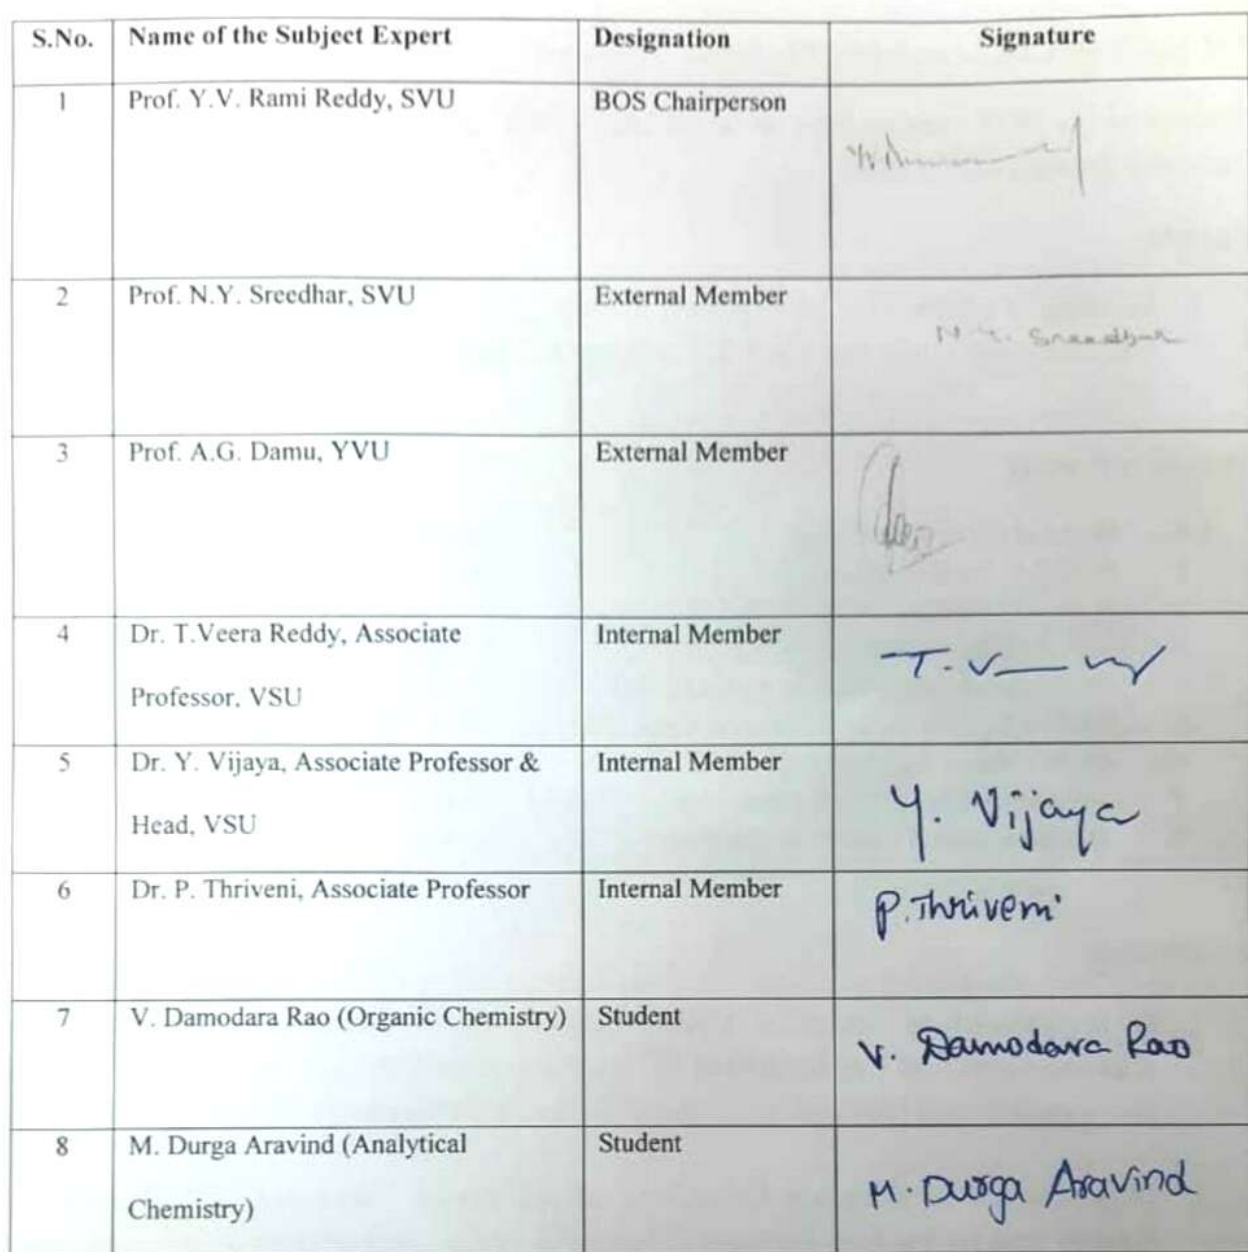 S.No. Name of the Subject Expert Designation Signature
1 Prof. Y.V. Rami Reddy, SVU BOS Chairperson
2 Prof. N.Y. Sreedhar, SVU External Member
N.Y. Sreedhar
3 Prof. A.G. Damu, YVU External Member
4 Dr. T.Veera Reddy, Associate Internal Member
Professor, VSU
5 Dr. Y. Vijaya, Associate Professor & Internal Member
Head, VSU
Y. Vijaya
6 Dr. P. Thriveni, Associate Professor Internal Member
P.Thriveni
7 V. Damodara Rao (Organic Chemistry) Student
V. Damodara Rao
8 M. Durga Aravind (Analytical Student
Chemistry)
M. Durga Aravind